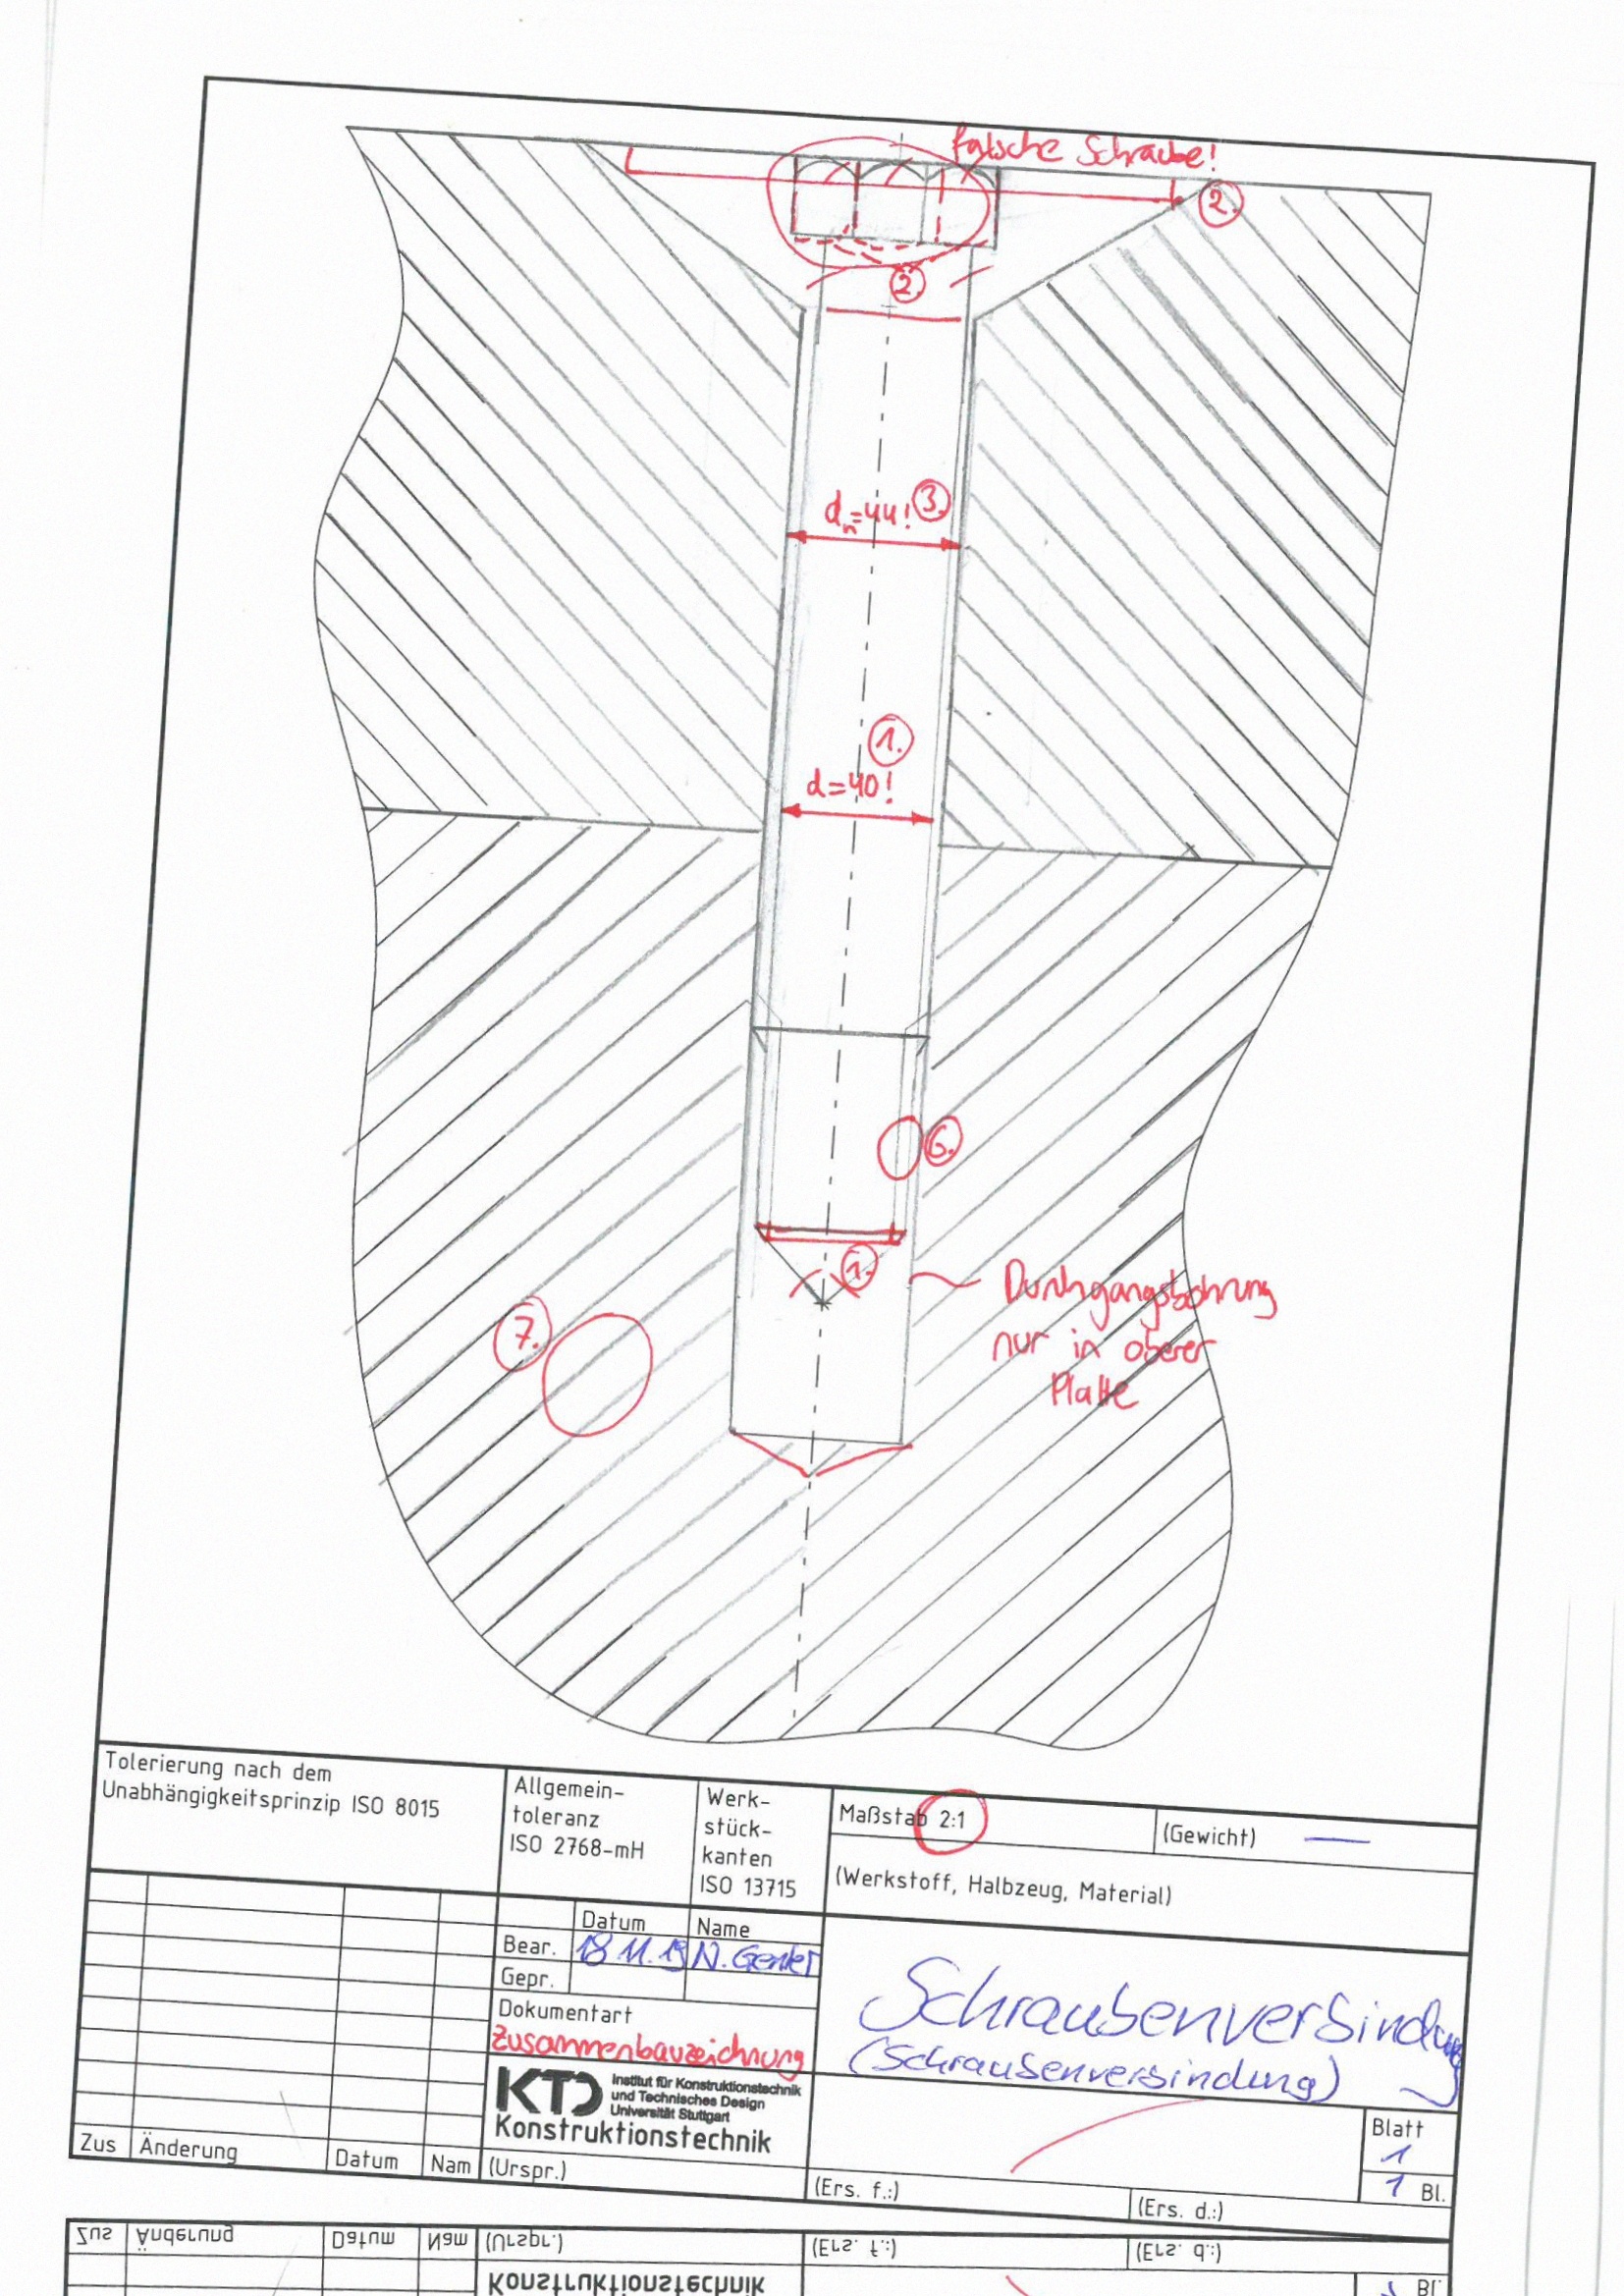 falsche Schraube!
2.
2.
dₙ=44! 3.
1.
d=40!
6.
1.
Durchgangsbohrung
nur in oberer
Platte
7.
Tolerierung nach dem
Unabhängigkeitsprinzip ISO 8015
Allgemein-
toleranz
ISO 2768-mH
Werk-
stück-
kanten
ISO 13715
Maßstab 2:1
(Gewicht) —
(Werkstoff, Halbzeug, Material)
Datum Name
Bear. 18.11.19 N. Genter
Gepr.
Dokumentart
Zusammenbauzeichnung
Schraubenverbindung
(Schraubenverbindung)
KTD Institut für Konstruktionstechnik
und Technisches Design
Universität Stuttgart
Konstruktionstechnik
Blatt
1
1 Bl.
Zus Änderung Datum Nam (Urspr.) (Ers. f.:) (Ers. d.:)
Zus Änderung Datum Nam (Urspr.) (Ers. f.:) (Ers. d.:)
Konstruktionstechnik
Bl.